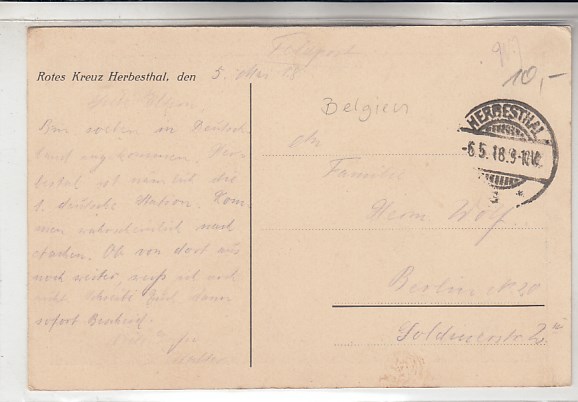 Feldpost
Rotes Kreuz Herbesthal, den 5. Mai 18
Liebe Eltern
Bin soeben in Deutsch-
land angekommen. Her-
bestal ist nämlich die
1. deutsche Station. Kom-
men wahrscheinlich nach
Aachen. Ob von dort aus
noch weiter, weiß ich noch
nicht. Schreibe Euch dann
sofort Bescheid.
10,-
Belgien
HERBESTHAL
-6.5.18.9-10V.
An
Familie
Herm. Wolf
Berlin N. 20
Soldinerstr.